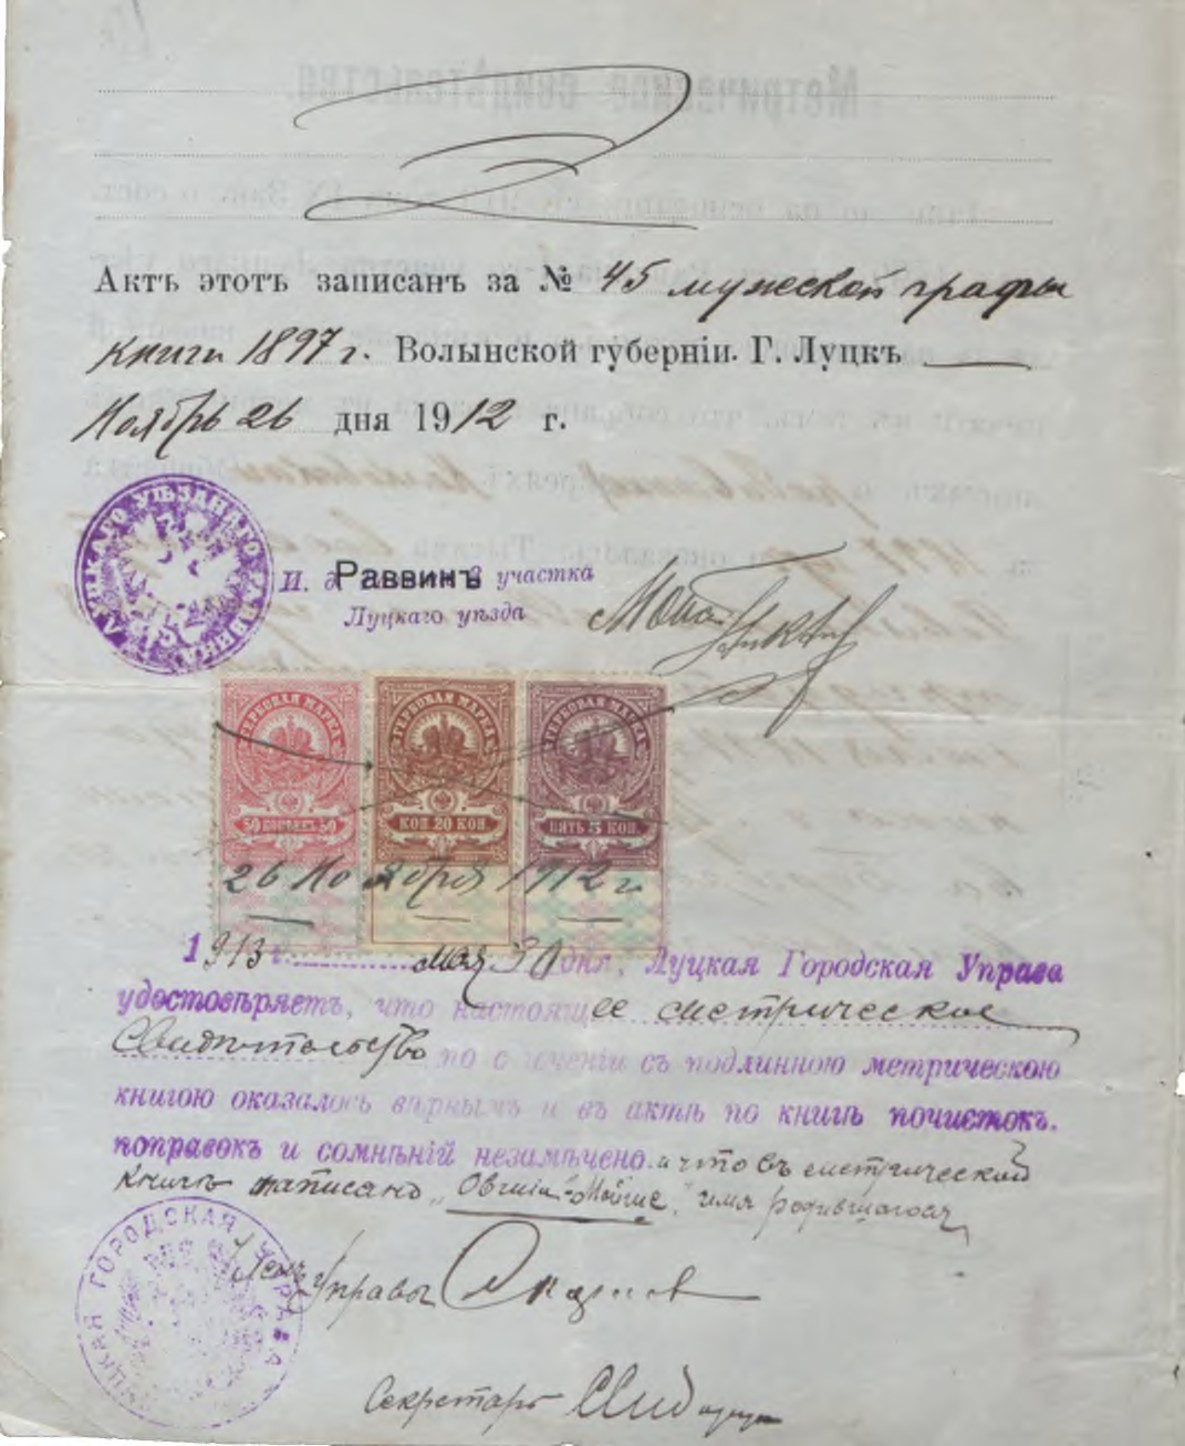 Актъ этотъ записанъ за № 45 мужской графы
книги 1897 г. Волынской губерніи. Г. Луцкъ
Ноябрь 26 дня 1912 г.
ЛУЦКАГО УѢЗДНАГО РАВВИНА
И. д. Раввинъ участка
Луцкаго уѣзда
ГЕРБОВАЯ МАРКА ГЕРБОВАЯ МАРКА ГЕРБОВАЯ МАРКА
50 КОПѢЕКЪ 50 КОП. 20 КОП. ПЯТЬ 5 КОП.
26 Ноября 1912 г.
1913 г. мая 30 дня, Луцкая Городская Управа
удостовѣряетъ, что настоящее метрическое
свидѣтельство по с иченіи съ подлинною метрическою
книгою оказалось вѣрнымъ и въ актѣ по книгѣ почистокъ.
поправокъ и сомнѣній незамѣчено. и что въ метрической
книгѣ записано „Овшій-Мойше", имя родившагося
ЛУЦКАЯ ГОРОДСКАЯ УПРАВА
Членъ Управы
Секретарь